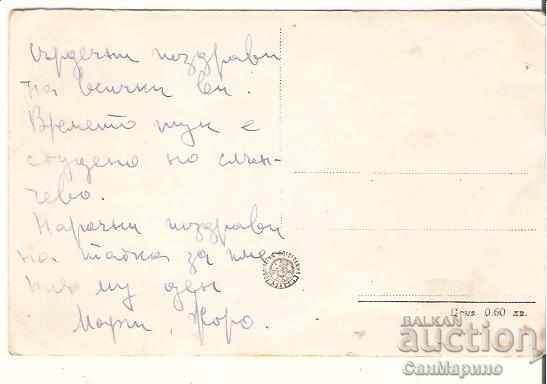 Сърдечни поздрави
на всички ви.
Времето тук е
студено но слън-
чево.
Нарочни поздрави
на татка за име
ния му ден
Мари, Жоро.
Цена 0.60 лв.
BALKAN
auction
СанМарино